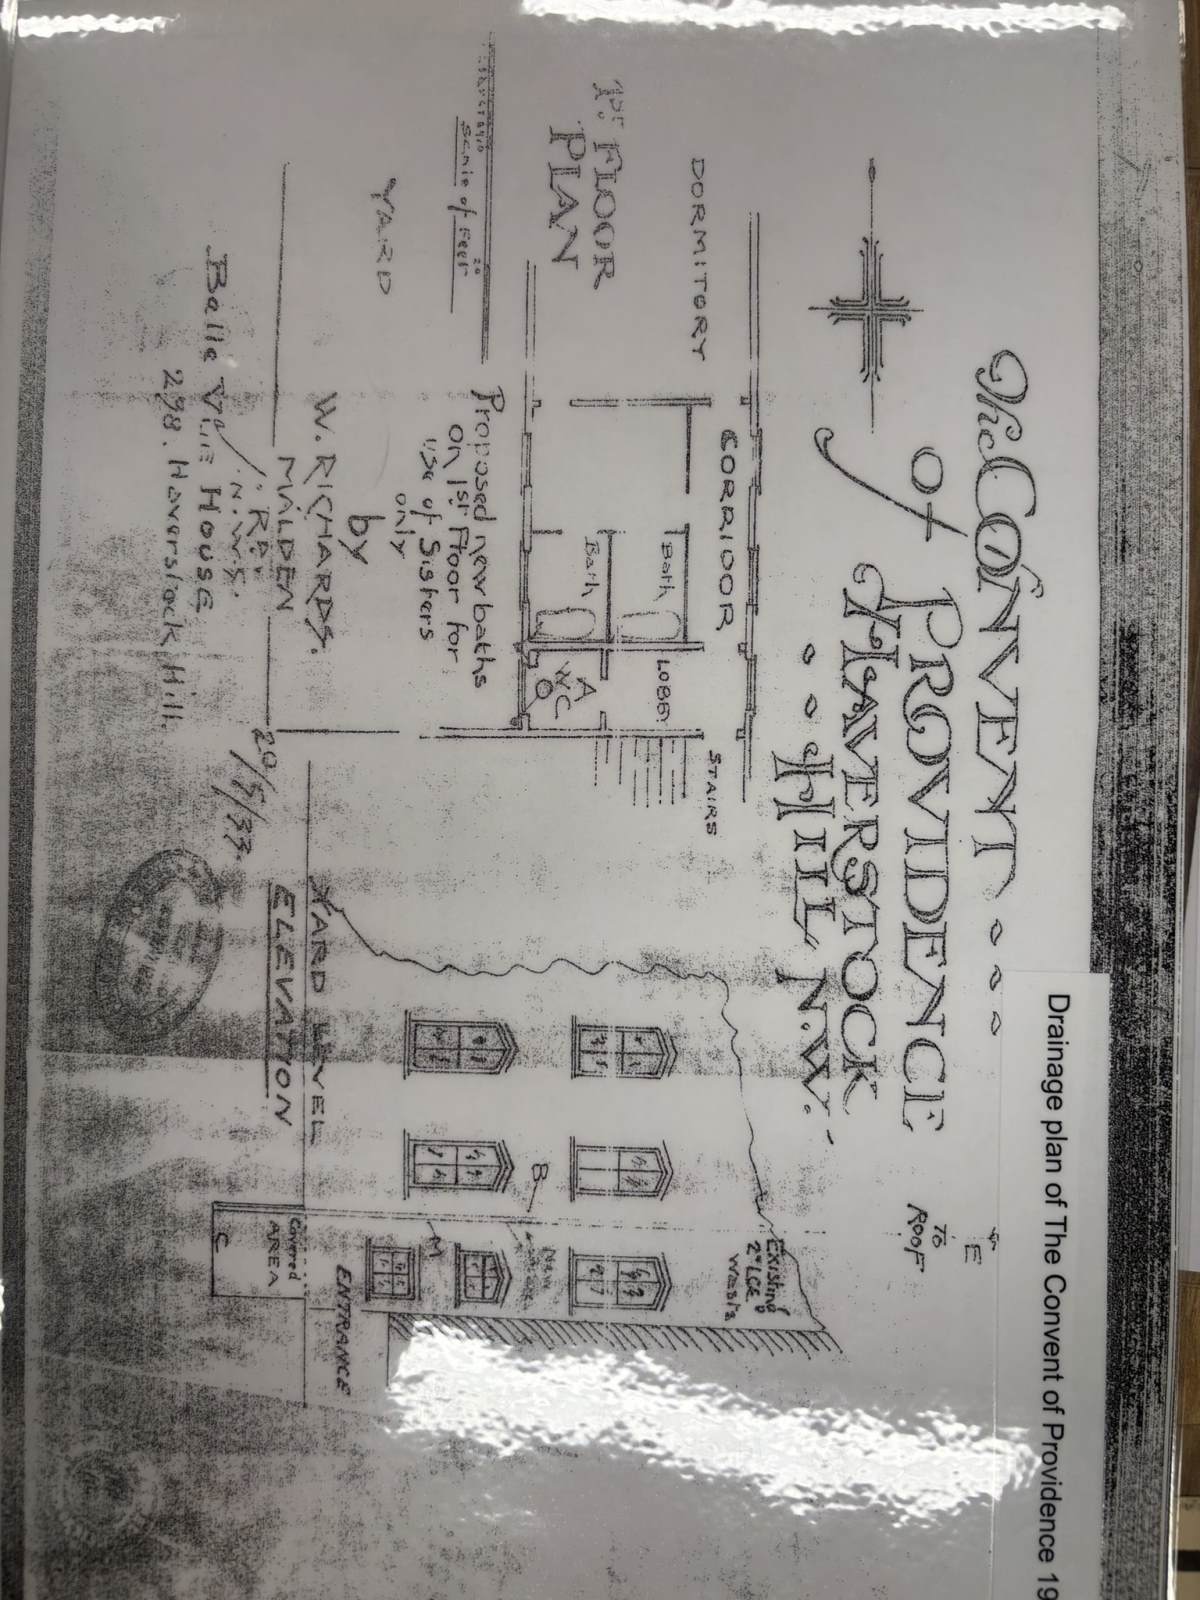 Drainage plan of The Convent of Providence 19
The CONVENT
of PROVIDENCE
HAVERSTOCK
HILL, N.W.
DORMITORY
CORRIDOR
STAIRS
Bath
Bath
LOBBY.
A
W.C.
1ST. FLOOR
PLAN
20
Scale of Feet
YARD
Proposed new baths
on 1st Floor for
use of Sisters
only
by
W. RICHARDS.
MALDEN
RD.
N.W.5.
HOUSE
298. Haverstock Hill.
20/5/37.
E
TO
ROOF
Existing
2" L.C.E.
Waste
B
New
M
ENTRANCE
Covered
AREA
C
YARD LEVEL
ELEVATION